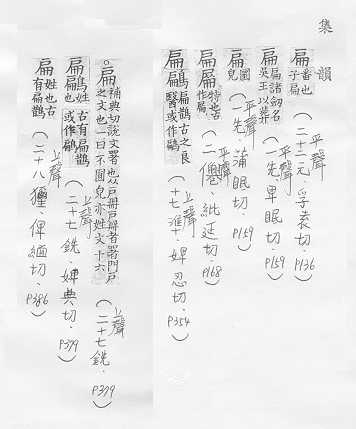 集韻
扁番也(平聲 二十二元.孚袁切.P136)
扁扁諸劒名吳王以葬(平聲 一先.卑眠切.P159)
扁圜皃(平聲 一先.蒲眠切.P159)
扁特也古作(平聲 二僊.紕延切.P168)
扁鶣扁鵲古之良醫或作鶣(十七準.婢忍切.P354)
扁補典切說文署也从戶冊戶冊者署門戶之文也一曰不圜皃亦姓文十六(上聲 二十七銑.P379)
扁鶣姓也古有扁鵲或作鶣(上聲 二十七銑.婢典切.P379)
扁姓也古有扁鵲(上聲 二十八獮.俾緬切.P386)